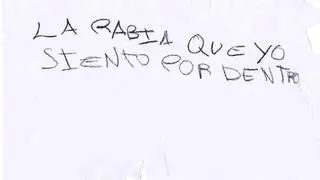 LA RABIA QUE YO
SIENTO POR DENTRO